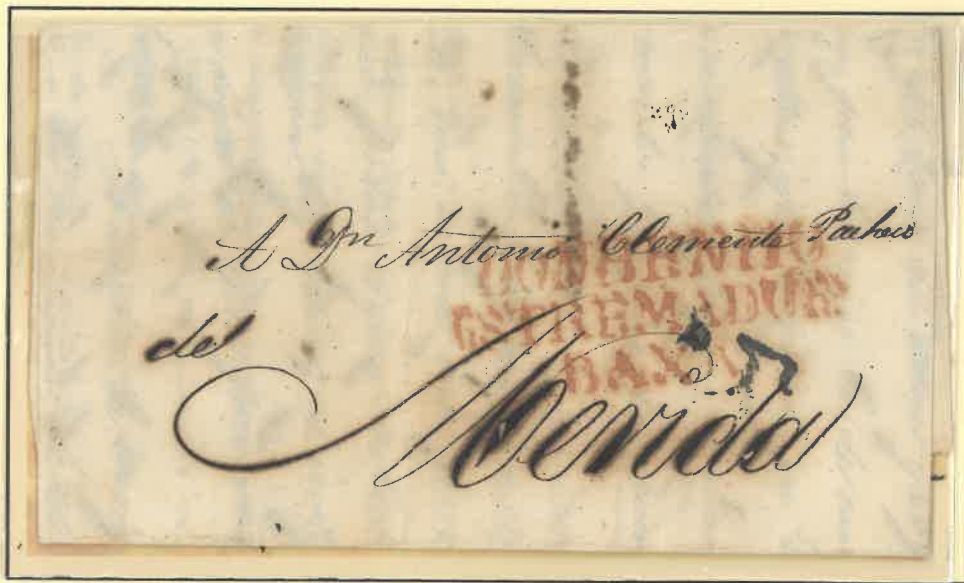 A Dn Antonio Clemente Pacheco
DON BENITO
ESTREMADURA
BAXA
de
Merida